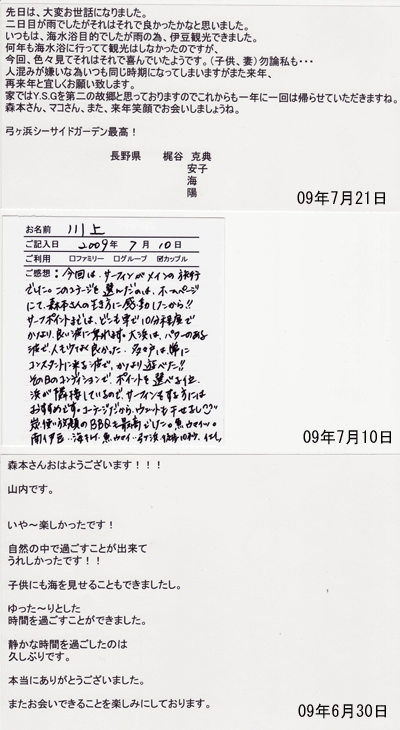 先日は、大変お世話になりました。
二日目が雨でしたがそれはそれで良かったかなと思いました。
いつもは、海水浴目的でしたが雨の為、伊豆観光できました。
何年も海水浴に行ってて観光はしなかったのですが、
今回、色々見てそれはそれで喜んでいたようです。（子供、妻）勿論私も・・・
人混みが嫌いな為いつも同じ時期になってしまいますがまた来年、
再来年と宜しくお願い致します。
家ではY.S.Gを第二の故郷と思っておりますのでこれからも一年に一回は帰らせていただきますね。
森本さん、マコさん、また、来年笑顔でお会いしましょうね。
弓ヶ浜シーサイドガーデン最高！
長野県　梶谷　克典
安子
海
陽
09年7月21日
お名前 川上
ご記入日 2009年 7月 10日
ご利用 □ファミリー □グループ ☑カップル
ご感想： 今回は、サーフィンがメインの旅行
でした。このコテージを選んだのは、ホームページ
にて、森本さんの生き方に感動したから!!
サーフポイントまでは、どこも車で10分程度で
かなり、良い波に乗れます。大浜は、パワーのある
波で、人も少なく良かった。多々戸は、常に
コンスタントに来る波で、かなり遊べた!!
その日のコンディションで、ポイントを選べる位、
浜が隣接しているので、サーフィンをする方には
おすすめです。コテージだから、ウェットも干せるし♡
炭使い放題のBBQも最高でした。魚ウマイッ。
09年7月10日
森本さんおはようございます！！！
山内です。
いや～楽しかったです！
自然の中で過ごすことが出来て
うれしかったです！！
子供にも海を見せることもできましたし。
ゆった～りとした
時間を過ごすことができました。
静かな時間を過ごしたのは
久しぶりです。
本当にありがとうございました。
またお会いできることを楽しみにしております。
09年6月30日